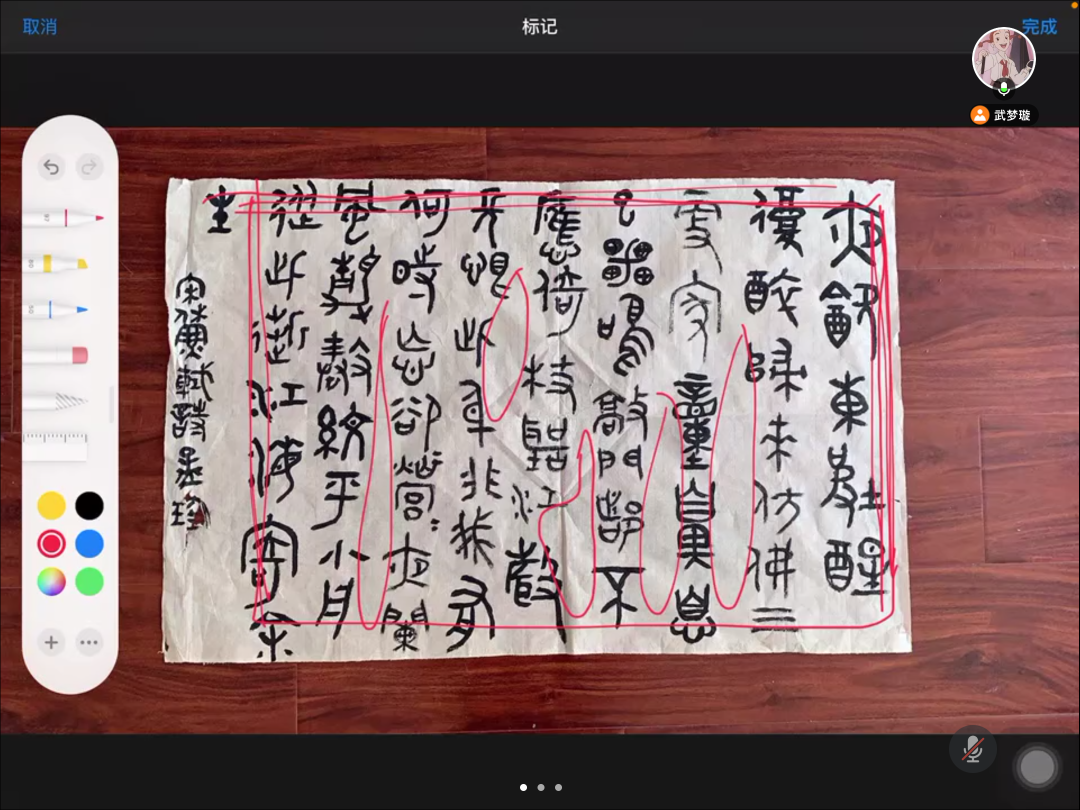 取消
标记
完成
武梦璇
夜飲東坡醒
復醉歸來仿佛三
更家童鼻息
已雷鳴敲門都不
應倚杖聽江聲
長恨此身非我有
何時忘卻營〻夜闌
風靜縠紋平小舟
從此逝江海寄余
生
宋蘇軾詩